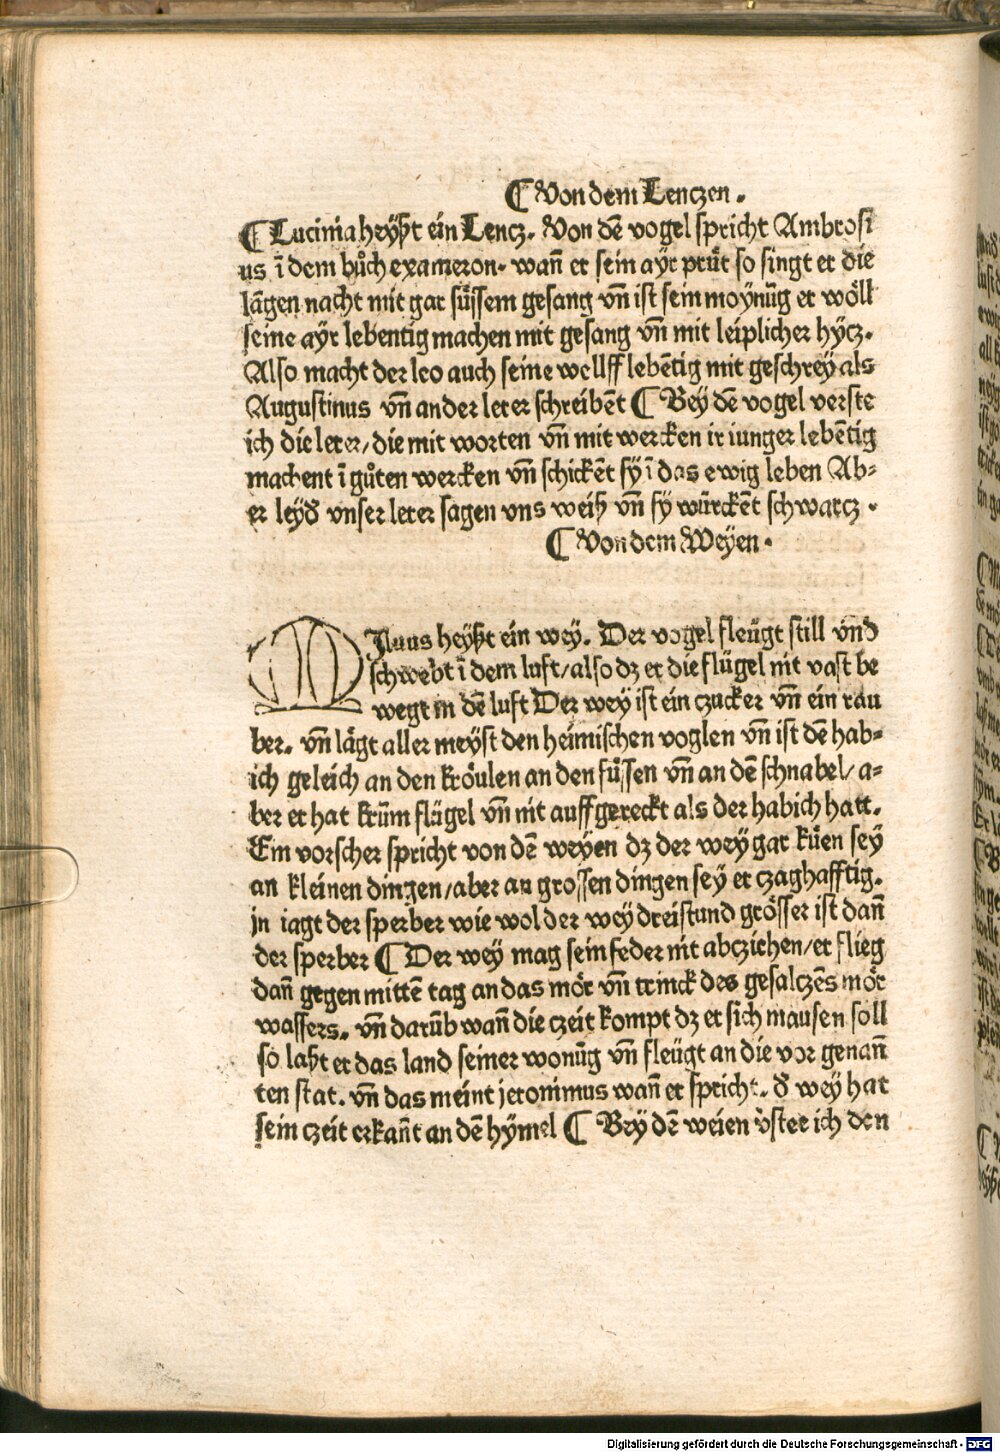 ¶ Von dem Lenczen.
¶ Lucinia heyßt ein Lencz. Von dē vogel spricht Ambrosi
us ī dem bůch exameron. wañ er sein ayr prüt so singt er die
lāgen nacht mit gar süssem gesang vñ ist sein moynūg er wöll
seine ayr lebentig machen mit gesang vñ mit leiplicher hycz.
Also macht der leo auch seine wellff lebētig mit geschrey als
Augustinus vñ ander lerer schreibēt ¶ Bey dē vogel verste
ich die lerer/ die mit worten vñ mit wercken ir iunger lebētig
machent ī gůten wercken vñ schickēt sy ī das ewig leben Ab-
er leyd' vnser lerer sagen vns weiß vñ sy würckēt schwarcz.
¶ Von dem Weyen.
MIluus heyßt ein wey. Der vogel fleügt still vnd
schwebt ī dem luft/ also dz er die flügel nit vast be
wegt in dē luft Der wey ist ein czucker vñ ein rau
ber. vñ lägt aller meyst den heimischen voglen vñ ist dē hab-
ich geleich an den kröulen an den füssen vñ an dē schnabel/ a-
ber er hat krūm flügel vñ nit auffgereckt als der habich hatt.
Ein vorscher spricht von dē weyen dz der wey gar küen sey
an kleinen dingen/ aber an grossen dingen sey er czaghafftig.
jn iagt der sperber wie wol der wey dreistund grösser ist dañ
der sperber ¶ Der wey mag sein feder nit abcziehen/ er flieg
dañ gegen mittē tag an das mör vñ trinck des gesalczēs mör
wassers. vñ darūb wañ die czeit kompt dz er sich mausen soll
so laßt er das land seiner wonūg vñ fleügt an die vor genañ
ten stat. vñ das meint jeronimus wañ er spricht. d' wey hat
sein czeit erkañt an dē hymel ¶ Bey dē weien v'stee ich den
Digitalisierung gefördert durch die Deutsche Forschungsgemeinschaft - DFG